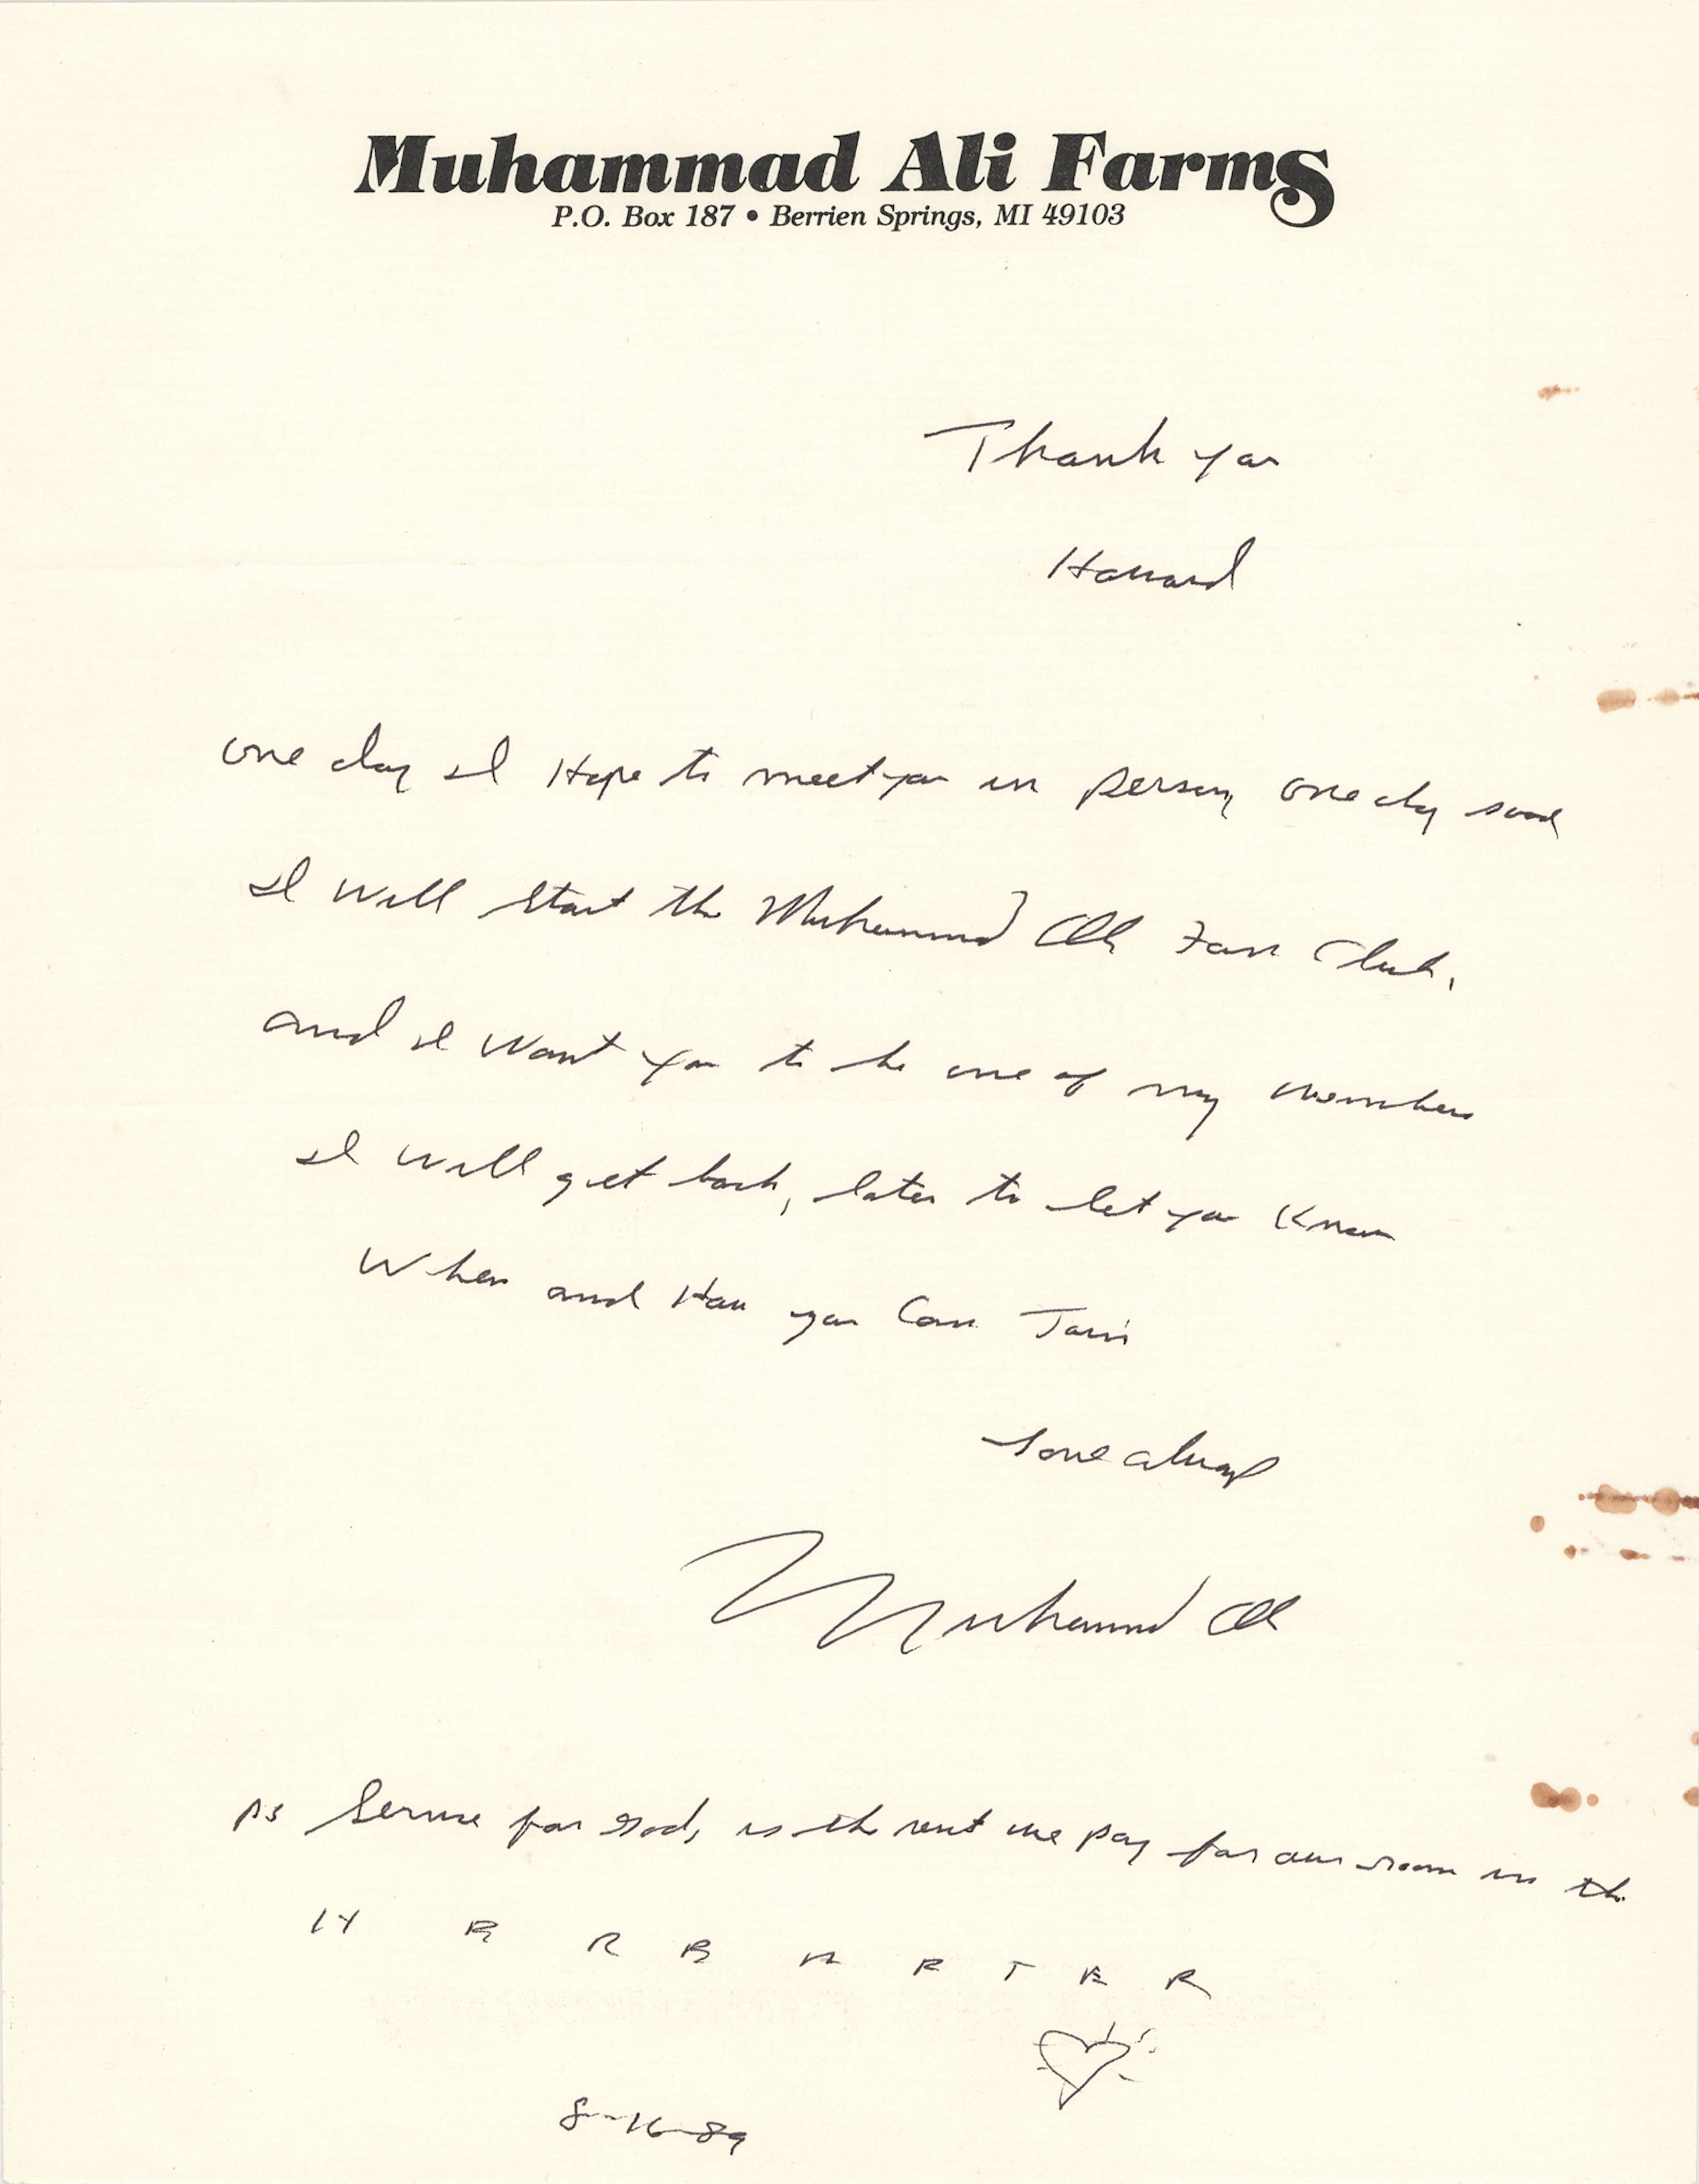 Muhammad Ali Farms
P.O. Box 187 • Berrien Springs, MI 49103
Thank you
Howard
one day I Hope to meet you in person, one day soon
I will start the Muhammad Ali Fan Club,
and I want you to be one of my members
I will get back, later to let you Know
When and How you Can Join
Love always
Muhammad Ali
PS Service for God, is the rent we pay for our room in the
H E R E A F T E R
8-16-89